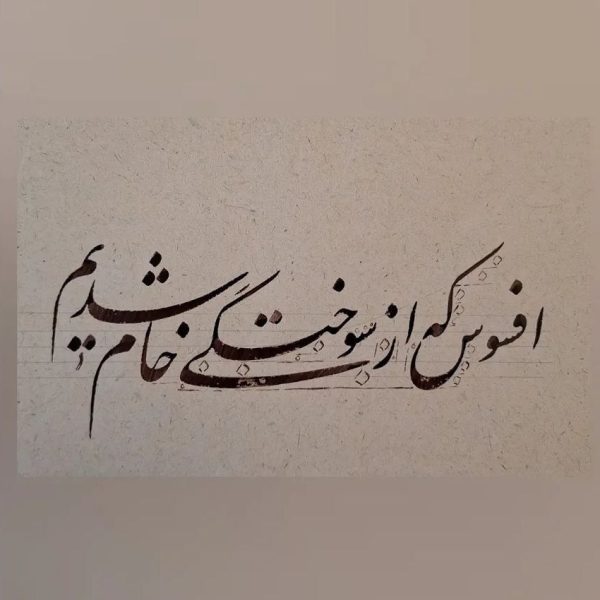 افسوس که از سوختگی خام شدیم